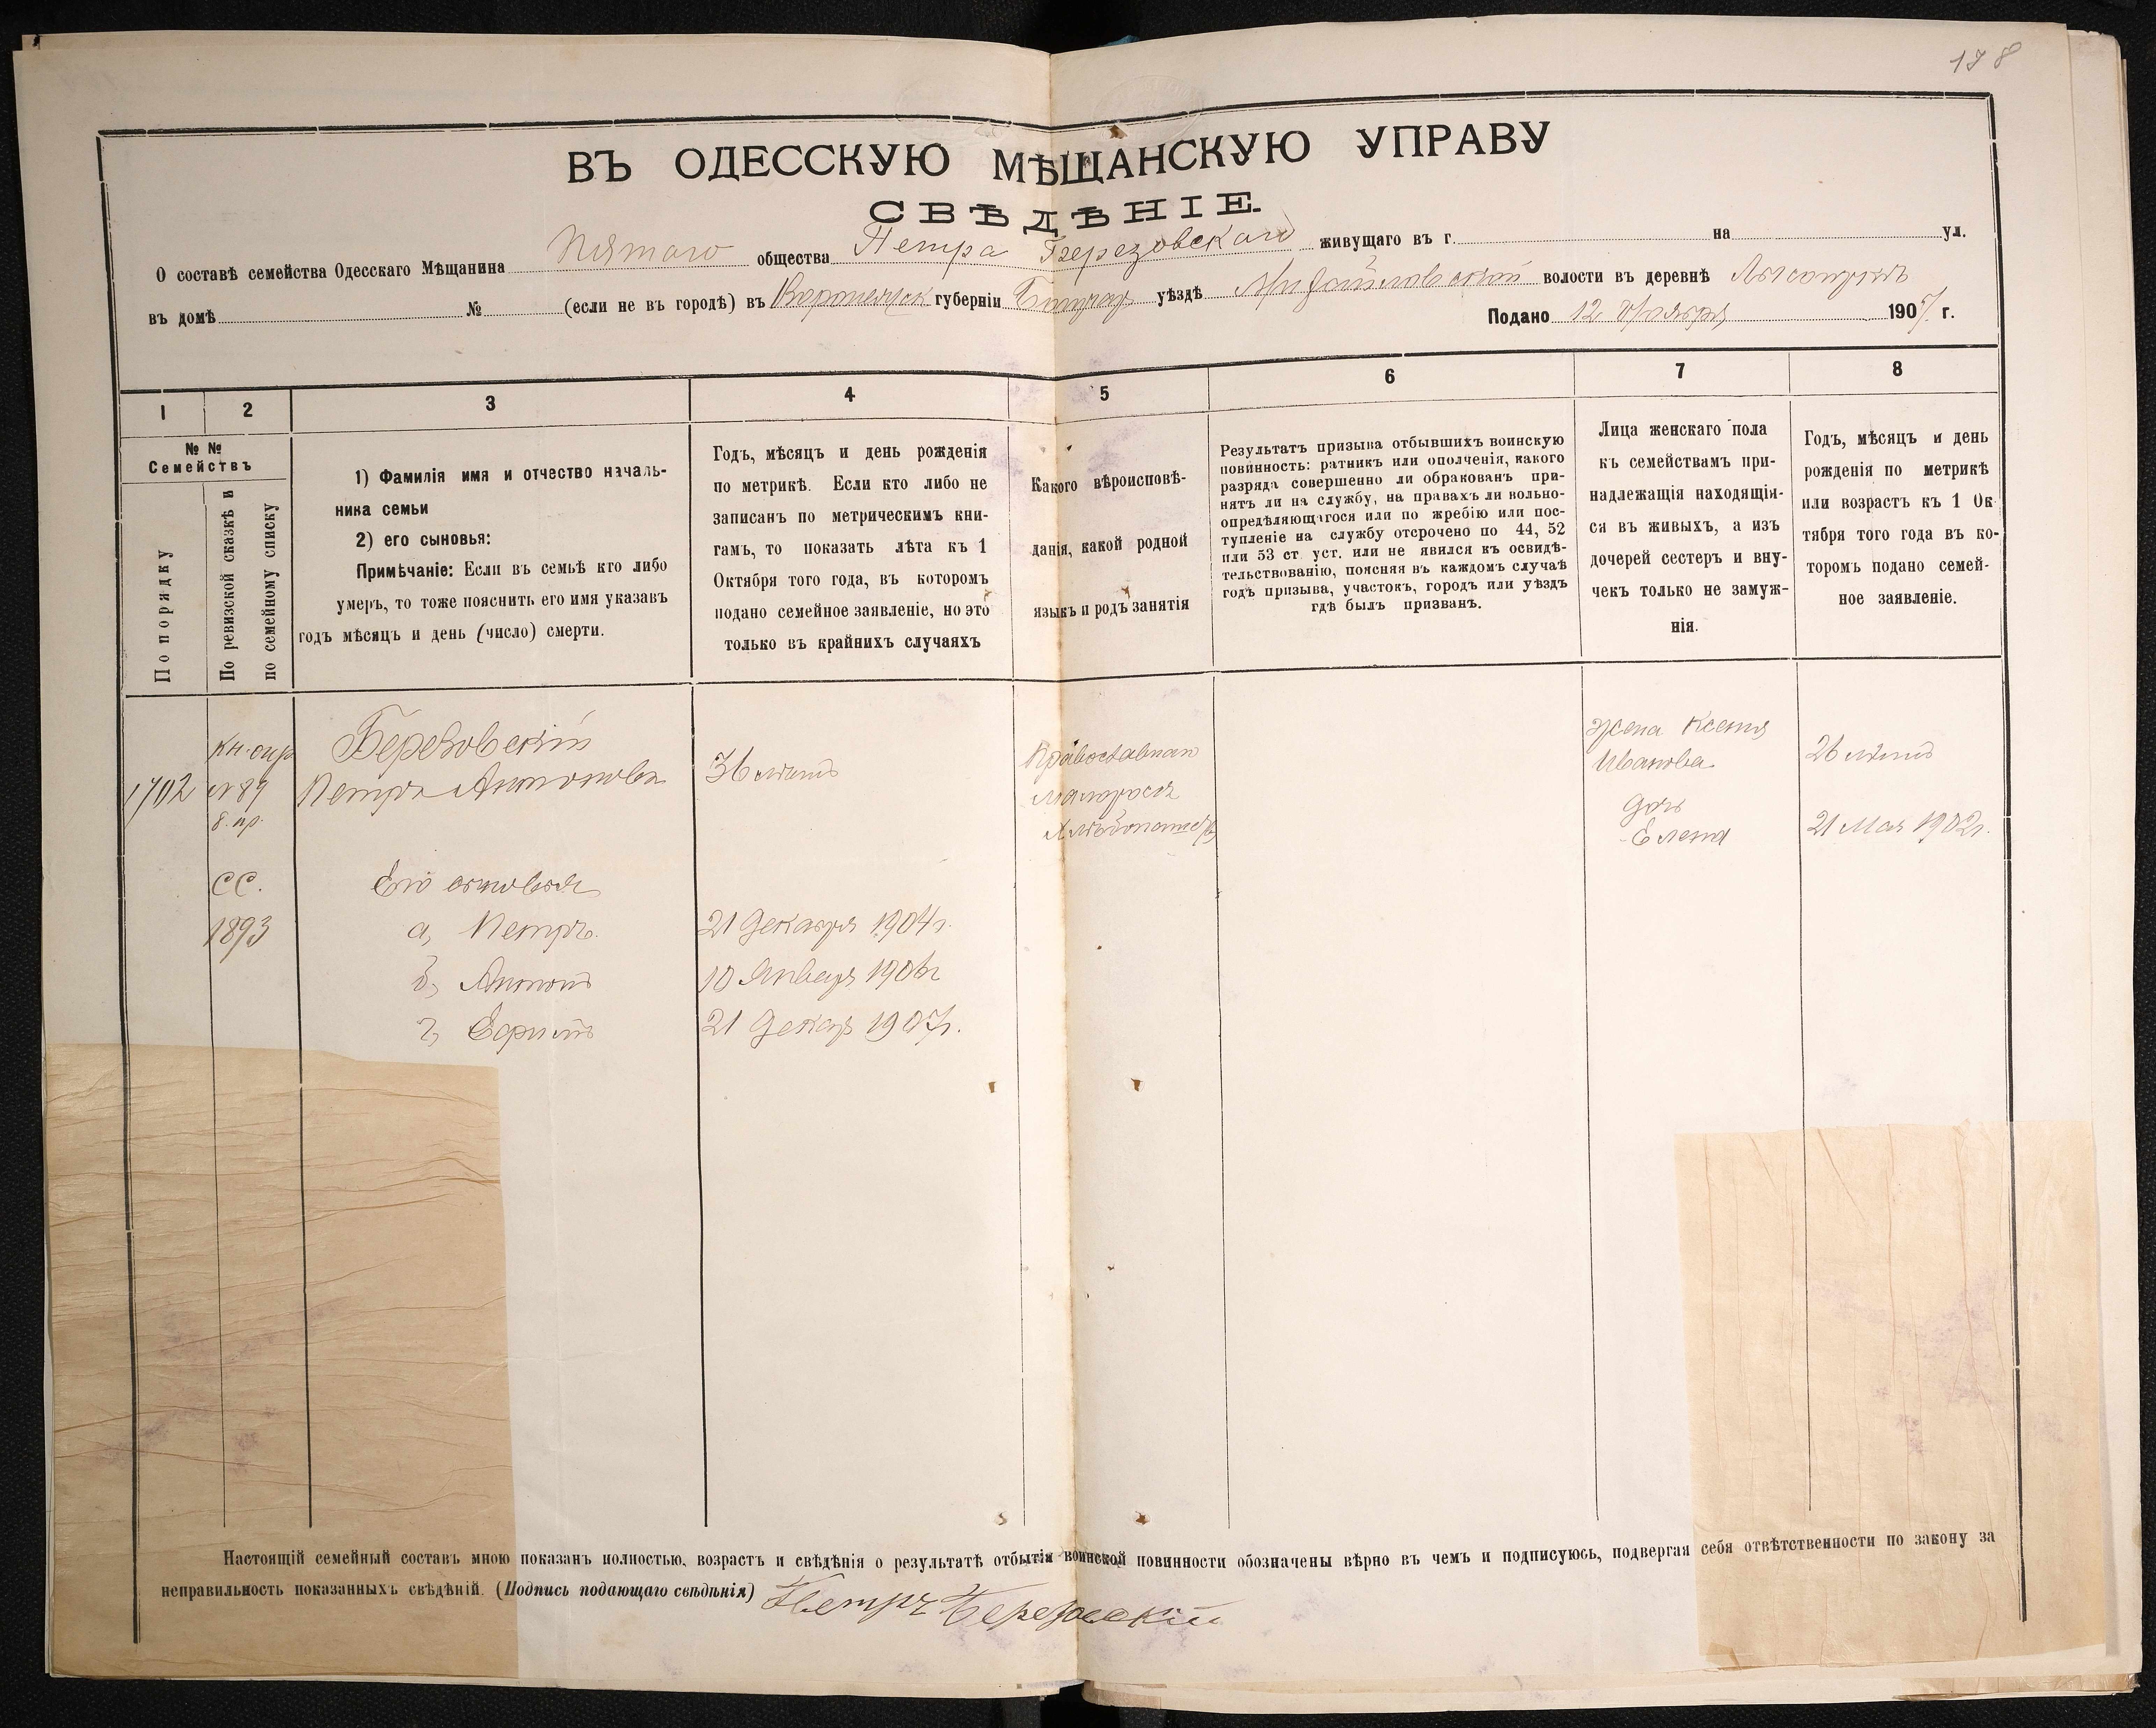 178
ВЪ ОДЕССКУЮ МѢЩАНСКУЮ УПРАВУ
СВѢДѢНІЕ.
О составѣ семейства Одесскаго Мѣщанина Пятаго общества Петра Березовскаго живущаго въ г. на ул.
въ домѣ № (если не въ городѣ) въ губерніи уѣздѣ Михайловской волости въ деревнѣ
Подано 12 Ноября 190 г.
1 2 3 4 5 6 7 8
№ №
Семействъ
По порядку
По ревизской сказкѣ и
по семейному списку
1) Фамилія имя и отчество началь-
ника семьи
2) его сыновья:
Примѣчаніе: Если въ семьѣ кто либо
умеръ, то тоже пояснить его имя указавъ
годъ мѣсяцъ и день (число) смерти.
Годъ, мѣсяцъ и день рожденія
по метрикѣ. Если кто либо не
записанъ по метрическимъ кни-
гамъ, то показать лѣта къ 1
Октября того года, въ которомъ
подано семейное заявленіе, но это
только въ крайнихъ случаяхъ
Какого вѣроисповѣ-
данія, какой родной
языкъ и родъ занятія
Результатъ призыва отбывшихъ воинскую
повинность: ратникъ или ополченія, какого
разряда совершенно ли обракованъ при-
нятъ ли на службу, на правахъ ли вольно-
опредѣляющагося или по жребію или пос-
тупленіе на службу отсрочено по 44, 52
или 53 ст уст. или не явился къ освидѣ-
тельствованію, поясняя въ каждомъ случаѣ
годъ призыва, участокъ, городъ или уѣздъ
гдѣ былъ призванъ.
Лица женскаго пола
къ семействамъ при-
надлежащія находящія-
ся въ живыхъ, а изъ
дочерей сестеръ и вну-
чекъ только не замуж-
нія.
Годъ, мѣсяцъ и день
рожденія по метрикѣ
или возрастъ къ 1 Ок-
тября того года въ ко-
торомъ подано семей-
ное заявленіе.
1702
№ 89
СС.
1893
Березовскій
Петръ Антоновъ
Его сыновья
а, Петръ.
б, Антонъ
г, Ефимъ
36 лѣтъ
21 Декабря 1904 г.
10 Января 1906 г
21 Декаб 1907 г.
Православнаго
Малоросъ
Жена Ксенія
Иванова
Дочь
Елена
26 лѣтъ
21 Мая 1902 г.
Настоящій семейный составъ мною показанъ полностью, возрастъ и свѣдѣнія о результатѣ отбытія воинской повинности обозначены вѣрно въ чемъ и подписуюсь, подвергая себя отвѣтственности по закону за
неправильность показанныхъ свѣдѣній. (Подпись подающаго свѣдѣнія) Петръ Березовскій